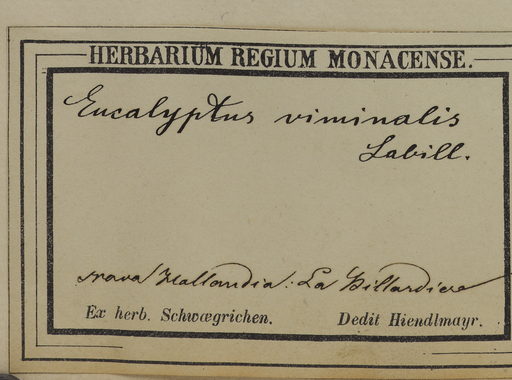 HERBARIUM REGIUM MONACENSE.
Eucalyptus viminalis
Labill.
nova Hollandia. La Billardiere
Ex herb. Schwægrichen. Dedit Hiendlmayr.